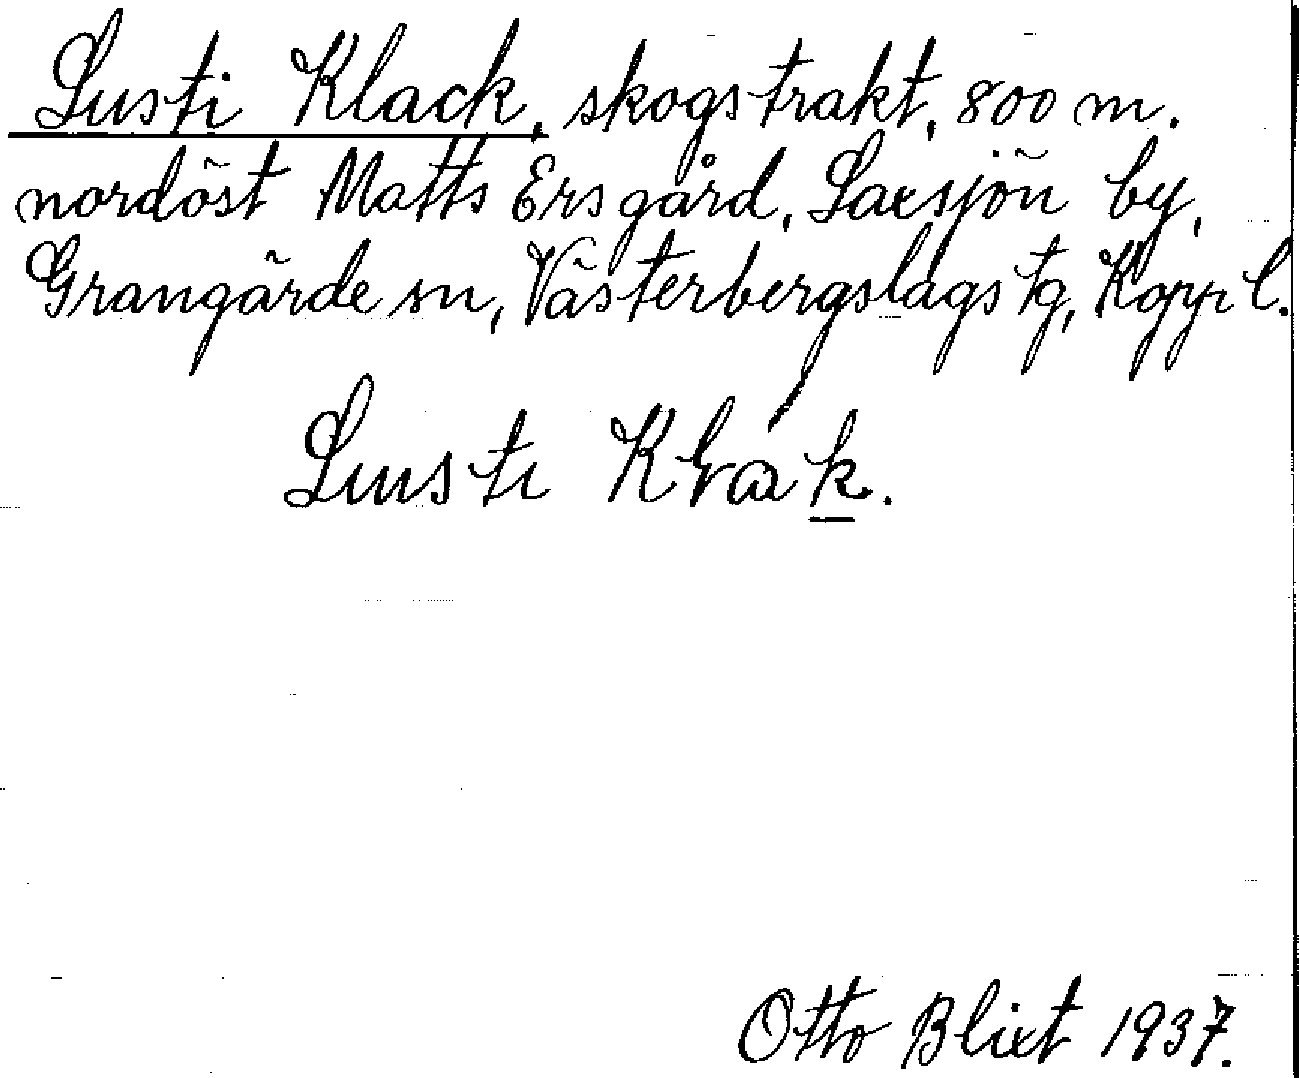 Lusti Klack, skogstrakt, 800 m.
nordöst Matts Ersgård, Laxsjön by,
Grangärde sn, Västerbergslags tg, Kopp l.
Kłak.
Otto Blixt 1937.